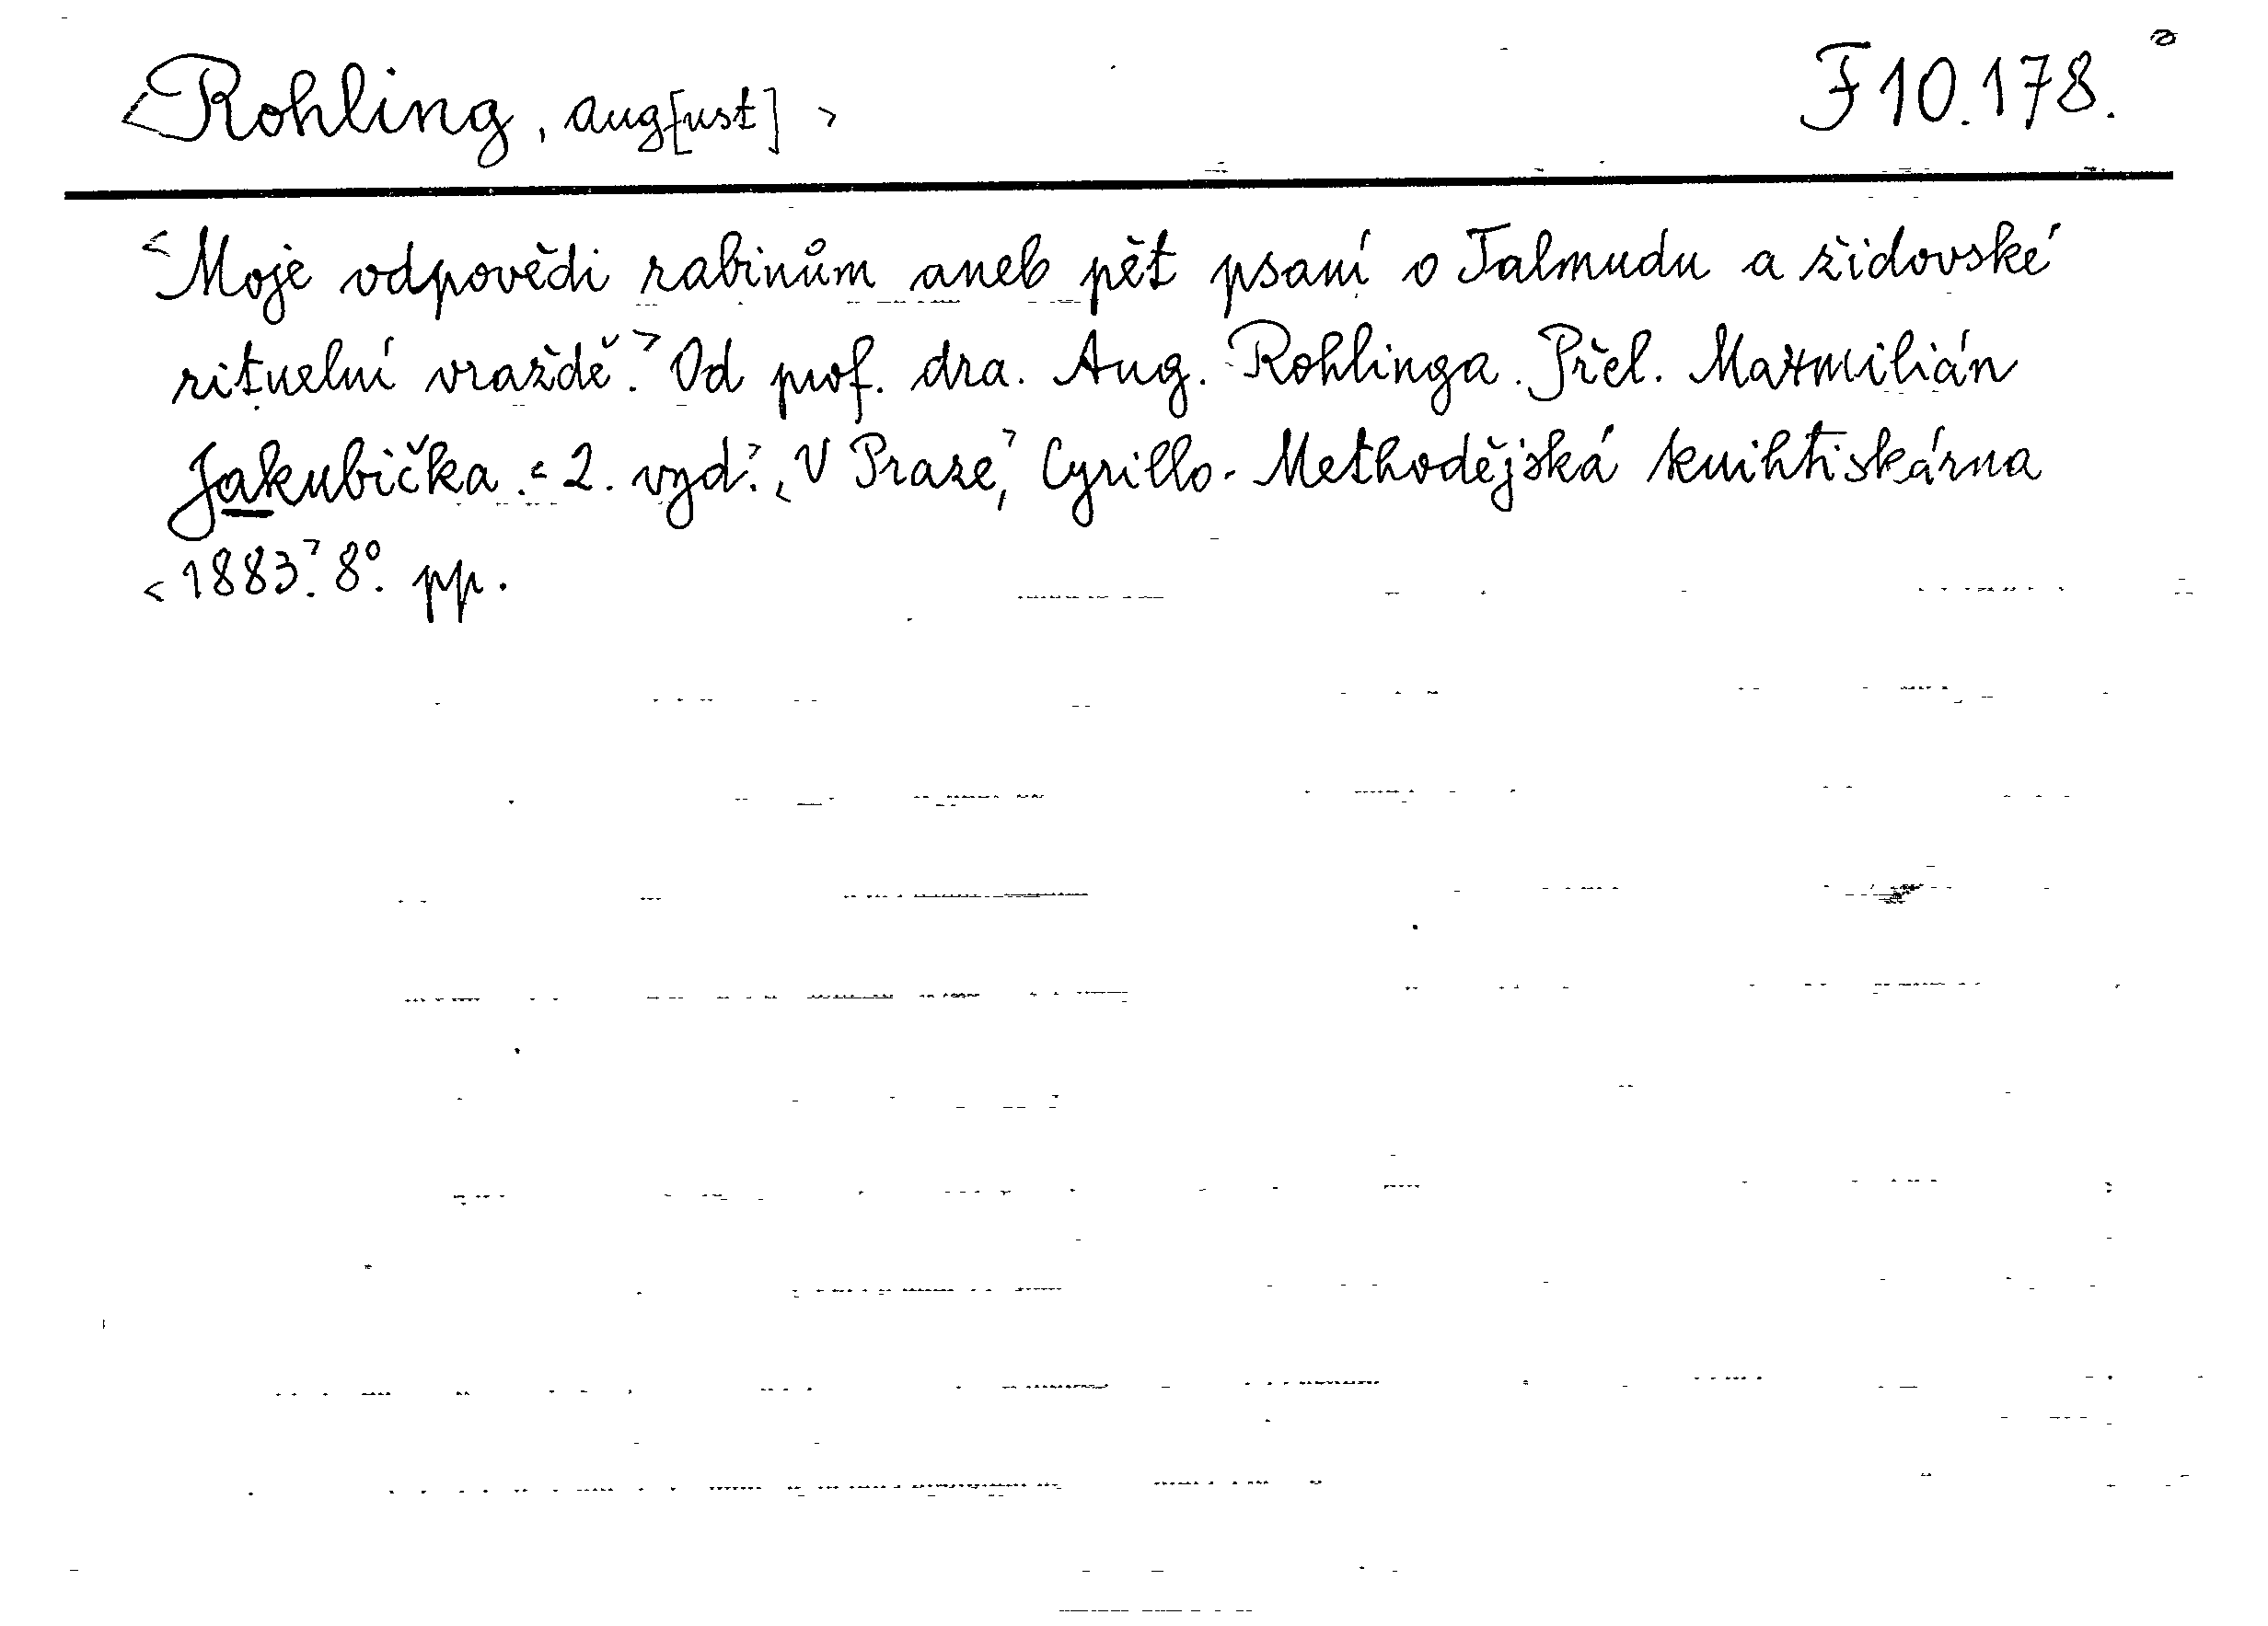 <Rohling, Aug[ust]> F 10.178.
<Moje odpovědi rabinům aneb pět psaní o Talmudu a židovské
rituelní vraždě.> Od prof. dra. Aug. Rohlinga. Přel. Maxmilián
Jakubička. <2. vyd.> <V Praze,> Cyrillo-Methodějská knihtiskárna
<1883.> 8°. pp.